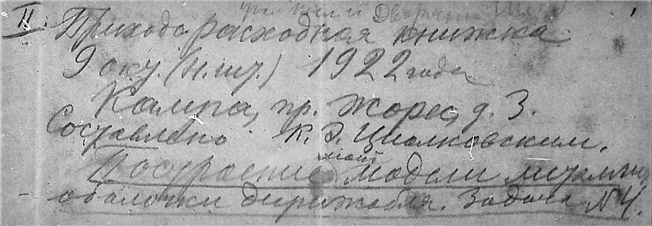 II. Приходо расходная книжка
9 окт. (н. шт.) 1922 года
Калуга, пр. Жореса, д. 3.
Составлено К. Э. Циолковским.
Построение модели металлич.
оболочки дирижабля. Задача №4.